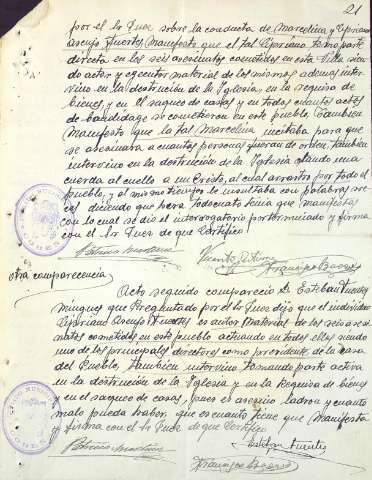 21
por el Sr Juez sobre la conducta de Marcelina y Cipriano
Manifesto que el tal Cipriano tomo parte
directa en los seis asesinatos cometidos en esta Villa sien
do actor y ejecutor material de los mismos ademas inter
vino en la destrucion de la Iglesia, en la requisa de
bienes, y en el saqueo de casas y en todos cuantos actos
de bandidage se cometieron en este pueblo. Tambien
Manifesto que la tal Marcelina incitaba para que
se asesinara a cuantas personas fueran de orden, tambien
intervino en la destrucion de la Iglesia atando una
cuerda al cuello a un Cristo, al cual arrastro por todo el
pueblo, y al mismo tiempo le insultaba con palabras
diciendo que era todo cuanto tenia que manifestar
con lo cual se dio el interrogatorio por terminado y firma
con el Sr Juez de que Certifico
otra comparecencia
Acto seguido comparecio D. Esteban Fuentes
Mingues que Preguntado por el Sr Juez dijo que el individuo
Cipriano es autor Material de los seis asesi
natos cometidos en este pueblo actuando en todos ellos siendo
uno de los principales directores como presidente de la casa
del Pueblo, tambien intervino tomando parte activa
en la destrucion de la Iglesia y en la Requisa de bienes
y en el saqueo de casas, pues es asesino ladron y cuanto
malo pueda haber, que es cuanto tiene que Manifestar
y firma con el Sr Juez de que Certifico
Esteban Fuentes